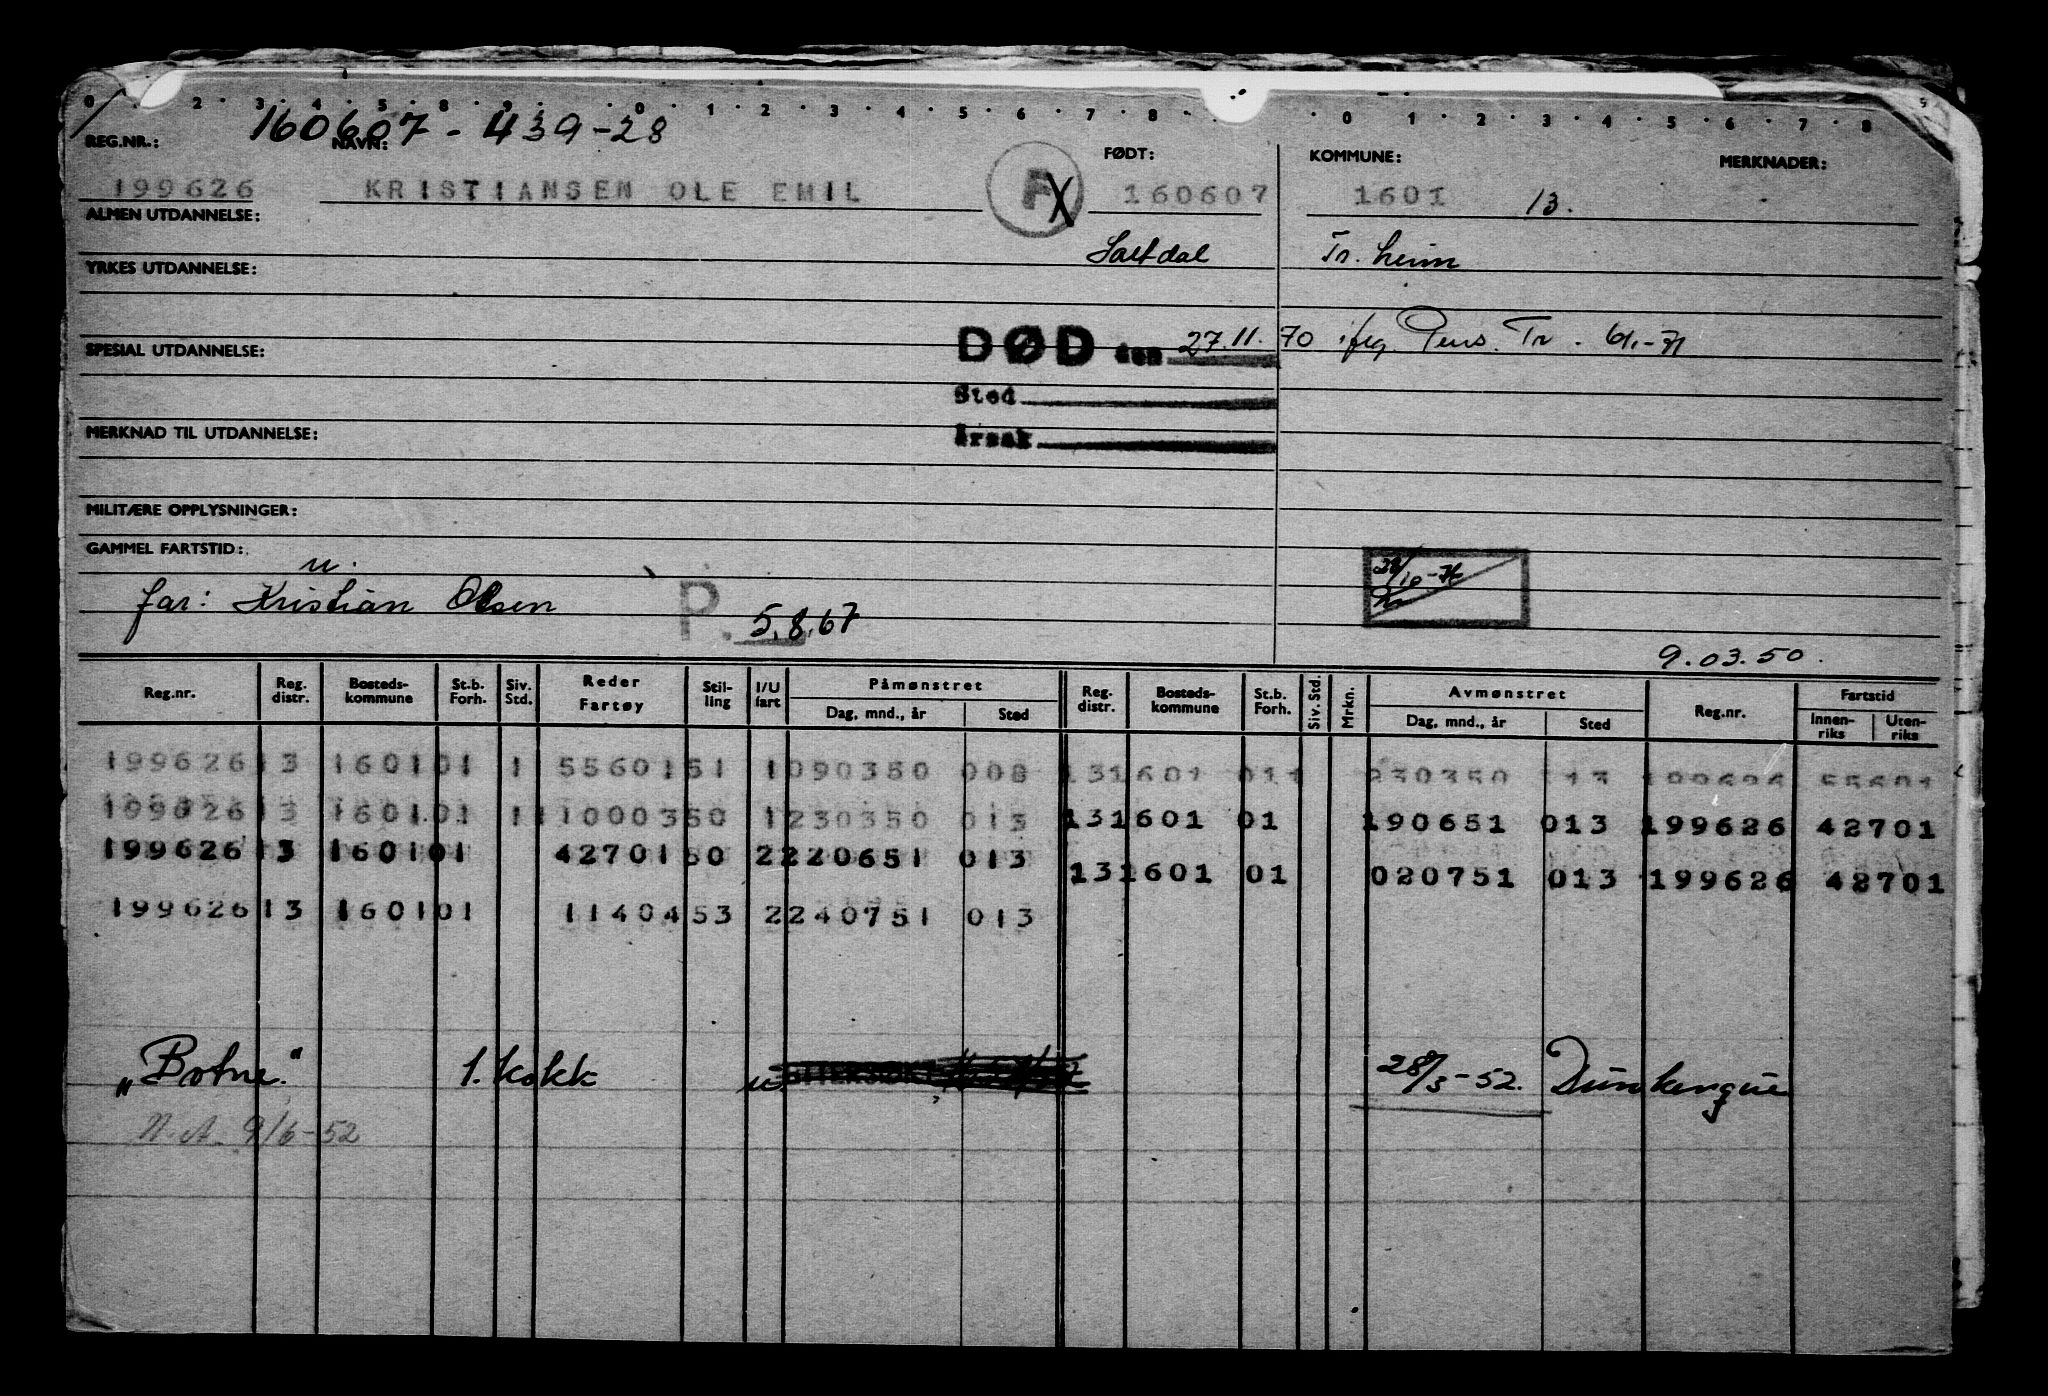 0 2 3 4 5 8 9 0 1 2 3 4 5 6 7 8 0 1 2 3 4 5 6 7 8 9
160607 - 439-28
REG.NR.: NAVN: FØDT: KOMMUNE: MERKNADER:
199626 KRISTIANSEN OLE EMIL F X 160607 1601 13.
ALMEN UTDANNELSE:
Saltdal Tr.heim
YRKES UTDANNELSE:
DØD den 27.11.70 iføg. Pens. Tr.
SPESIAL UTDANNELSE:
Sted
Årsak
MERKNAD TIL UTDANNELSE:
MILITÆRE OPPLYSNINGER:
GAMMEL FARTSTID:
u.
far: Kristian Olsen P. 5.8.67
9.03.50.
Reg.nr. Reg. distr. Bosteds-kommune St.b. Forh. Siv. Std. Reder Fartøy Stil-ling I/U fart Påmønstret Dag, mnd., år Sted Reg. distr. Bosteds-kommune St.b. Forh. Siv. Std. Mrkn. Avmønstret Dag, mnd., år Sted Reg.nr. Fartstid Innen-riks Uten-riks
199626 13 1601 01 1 55601 51 1 090350 008 13 1601 01 1 230350 113 199626 55601
199626 13 1601 01 1 1 10003 50 1 230350 013 13 1601 01 190651 013 199626 42701
199626 13 1601 01 42701 50 2 220651 013 13 1601 01 020751 013 199626 42701
199626 13 1601 01 11404 53 2 240751 013
"Botne." 1. kokk u 28/3-52. Dunkerque
N.A. 9/6-52